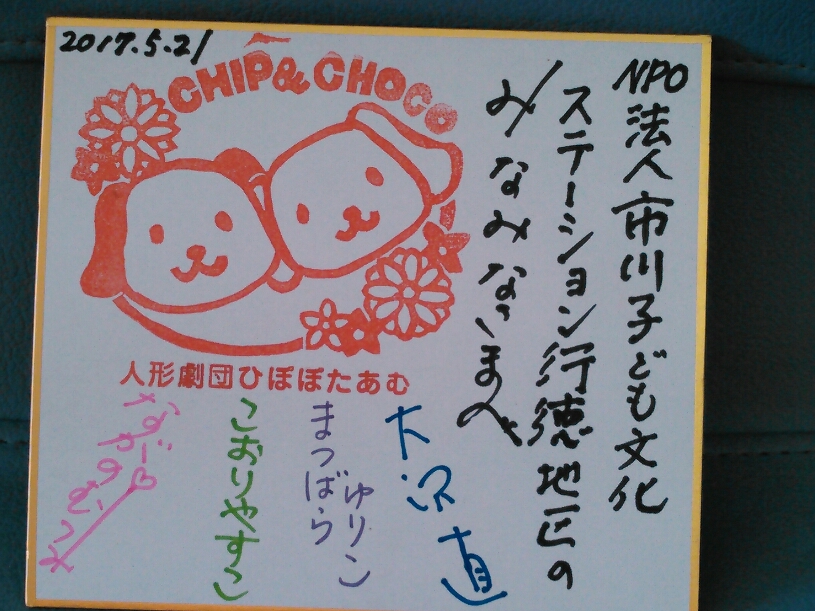 2017.5.21
CHIP & CHOCO
NPO法人市川子ども文化
ステーション行徳地区の
みなみなさまへ
人形劇団ひぽぽたあむ
大沢直
まつばら
ゆりこ
こおりやすこ